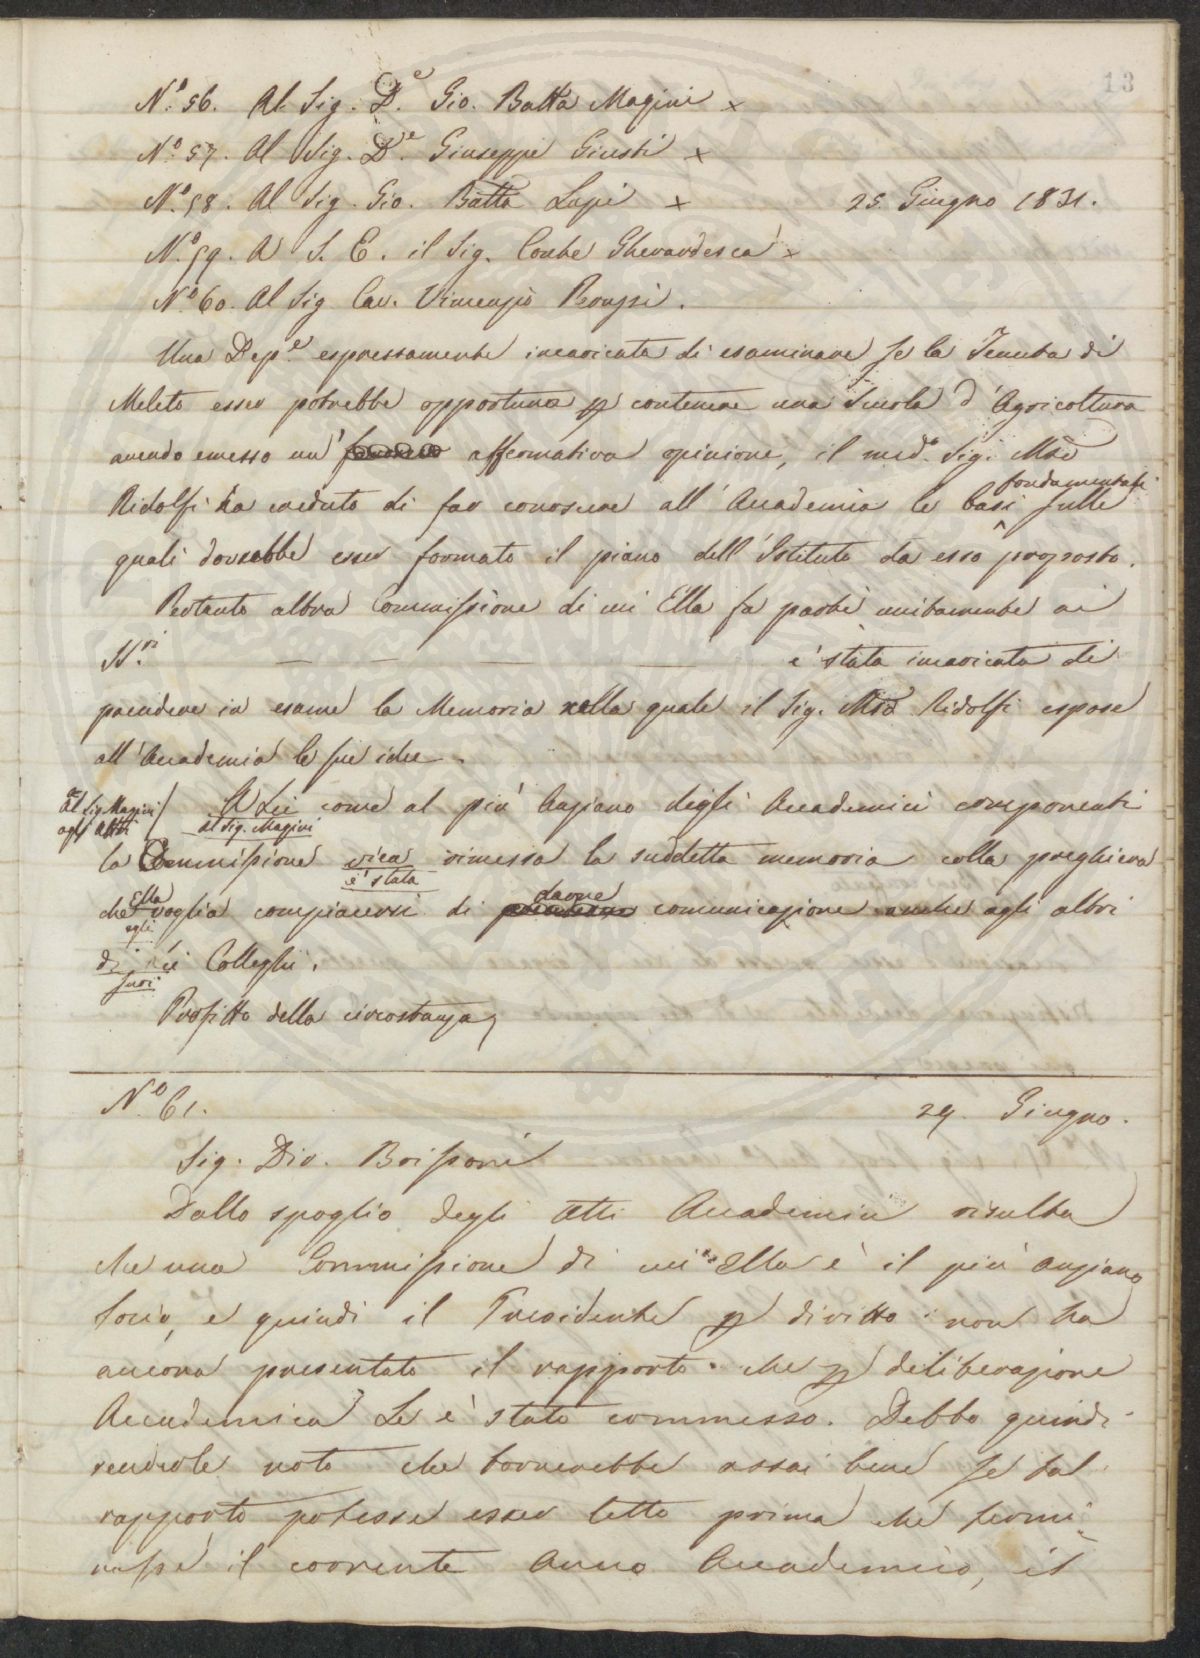 13
N.º 56. Al Sig. D.e Gio. Batta Magini x
N.º 57. Al Sig. D.e Giuseppe Giusti x
N.º 58. Al Sig. Gio. Batta Lapi x 25 Giugno 1831.
N.º 59. A S. E. il Sig. Conte Gherardesca x
N.º 60. Al Sig Cav. Vincenzio Peruzzi.
Una Dep.e espressamente incaricata di esaminare se la Tenuta di
Meleto esser potrebbe opportuna p contenere una Scuola d'Agricoltura
avendo emesso un' affermativa opinione, il med.o Sig. Mse
Ridolfi ha creduto di far conoscere all'Accademia le basi fondamentali sulle
quali dovrebbe esser formato il piano dell'Istituto da esso proposto.
Pertanto altra Commissione di cui Ella fa parte unitamente ai
SS.ri — — — — è stata incaricata di
prendere in esame la Memoria nella quale il Sig. Mse Ridolfi espose
all'Accademia le sue idee.
al Sig. Magini / A Lei come al più Anziano degli Accademici componenti
agli altri al Sig. Magini
la Commissione vien rimessa la suddetta memoria colla preghiera
è stata
che Ella voglia compiacersi di darne comunicazione anche agli altri
egli
di Lei Colleghi.
suoi
Profitto della circostanza,
N.º 61. 29. Giugno.
Sig. Div. Brissoni
Dallo spoglio degli Atti Accademici risulta
che una Commissione di cui Ella è il più anziano
Socio, e quindi il Presidente p diritto non ha
ancora presentato il rapporto che p deliberazione
Accademica Le è stato commesso. Debbo quindi
renderle noto che tornerebbe assai bene se tal
rapporto potesse esser letto prima che termi=
nasse il corrente Anno Accademico, il